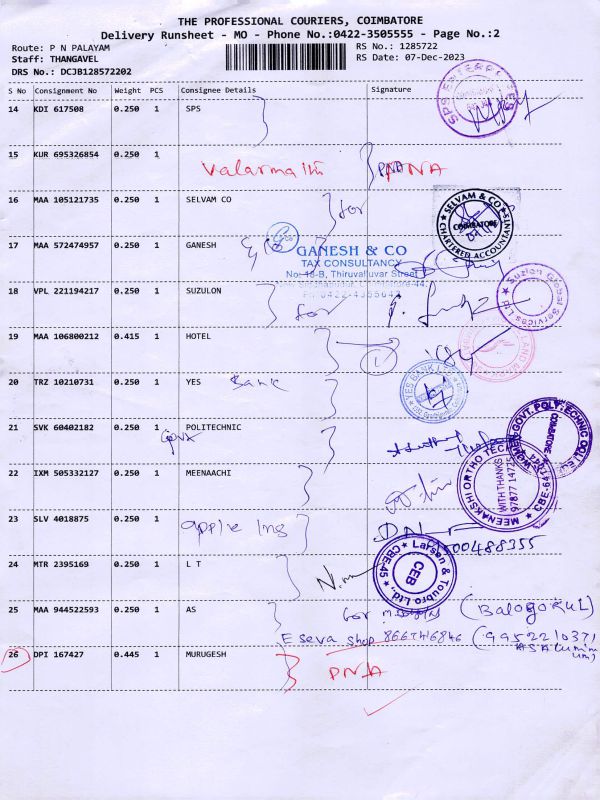 THE PROFESSIONAL COURIERS, COIMBATORE
Delivery Runsheet - MO - Phone No.:0422-3505555 - Page No.:2
Route: P N PALAYAM RS No.: 1285722
Staff: THANGAVEL RS Date: 07-Dec-2023
DRS No.: DCJB128572202
S No Consignment No Weight PCS Consignee Details Signature
14 KDI 617508 0.250 1 SPS
SPS ENTERPRISES
15 KUR 695326854 0.250 1
Valarmathi PNA PNA
16 MAA 105121735 0.250 1 SELVAM CO
for
SELVAM & CO
COIMBATORE
CHARTERED ACCOUNTANTS
17 MAA 572474957 0.250 1 GANESH
GANESH & CO
TAX CONSULTANCY
No: 18-B, Thiruvalluvar Street
18 VPL 221194217 0.250 1 SUZULON
for
Suzlon Global Services Ltd
19 MAA 106800212 0.415 1 HOTEL
20 TRZ 10210731 0.250 1 YES Bank
YES BANK LTD
21 SVK 60402182 0.250 1 POLITECHNIC
Govt
WOMEN GOVT. POLYTECHNIC COLLEGE
22 IXM 505332127 0.250 1 MEENAACHI
MEENAKSHI ORTHO TECH
WITH THANKS
97877 14725
CBE-641
23 SLV 4018875 0.250 1
apple Ims
24 MTR 2395169 0.250 1 L T
Larsen & Toubro Ltd.,
CEB
CBE-45
25 MAA 944522593 0.250 1 AS
for (Balogokul)
E seva shop
26 DPI 167427 0.445 1 MURUGESH
PNA